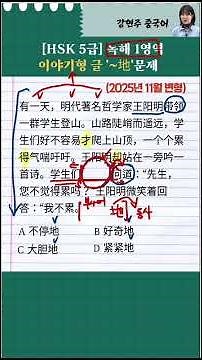 강현주 중국어
[HSK 5급] 독해 1영역
이야기형 글 '~地'문제
(2025년 11월 변형)
有一天，明代著名哲学家王阳明带领
一群学生登山。山路陡峭而遥远，学
生们好不容易才爬上山顶，一个个累
得气喘吁吁。王阳明却站在一旁吟一
首诗。学生们
问道：“先生，
您不觉得累吗？”王阳明微笑着回
答：“我不累。
부사어
地
동사
A 不停地
B 好奇地
C 大胆地
D 紧紧地